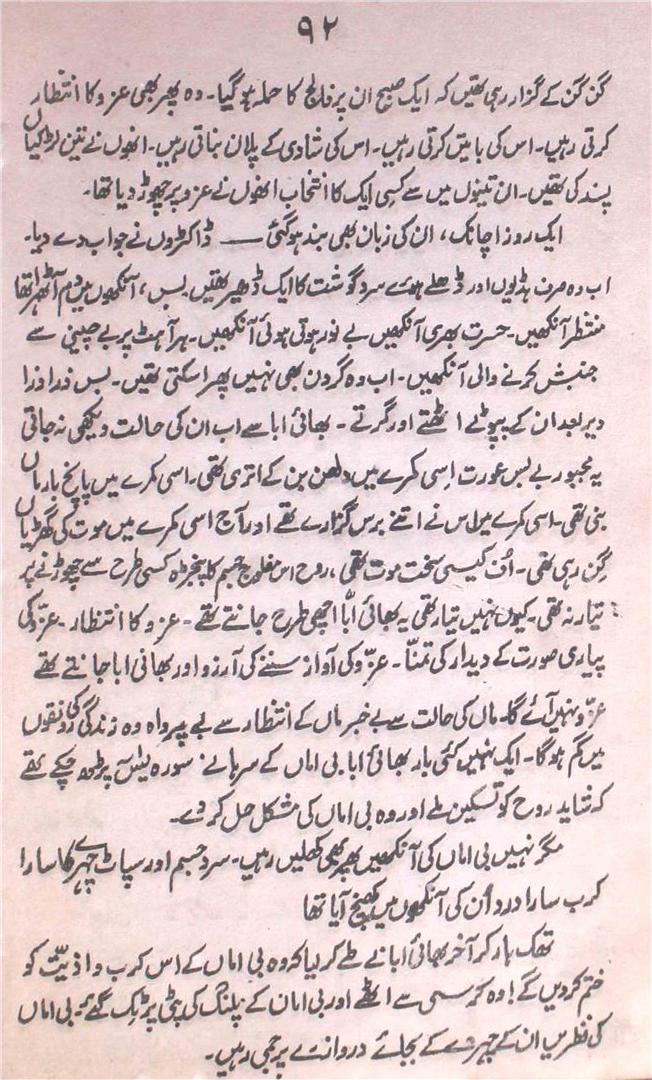 ۹۲
گن گن کے گزار رہی تھیں کہ ایک صبح ان پر فالج کا حملہ ہو گیا۔ وہ پھر بھی عزو کا انتظار
کرتی رہیں۔ اس کی باتیں کرتی رہیں۔ اس کی شادی کے پلان بناتی رہیں۔ انھوں نے تین لڑکیاں
پسند کی تھیں۔ ان تینوں میں سے کسی ایک کا انتخاب انھوں نے عزو پر چھوڑ دیا تھا۔
ایک روز اچانک، ان کی زبان بھی بند ہو گئی ــــ ڈاکٹروں نے جواب دے دیا۔
اب وہ صرف ہڈیوں اور ڈھلے ہوئے سرد گوشت کا ایک ڈھیر تھیں بس، آنکھوں میں دم آ ٹھہرا تھا
منتظر آنکھیں۔ حسرت بھری آنکھیں بے نور ہوتی ہوئی آنکھیں۔ ہر آہٹ پر بے چینی سے
جنبش کرنے والی آنکھیں۔ اب وہ گردن بھی نہیں پھرا سکتی تھیں۔ بس ذرا ذرا
دیر بعد ان کے پپوٹے اٹھتے اور گرتے۔ بھائی ابا سے اب ان کی حالت دیکھی نہ جاتی
یہ مجبور بے بس عورت اسی کمرے میں دلھن بن کے اتری تھی۔ اسی کمرے میں پانچ بار ماں
بنی تھی۔ اسی کمرے میں اس نے اتنے برس گزارے تھے اور آج اسی کمرے میں موت کی گھڑیاں
گن رہی تھی۔ اُف کیسی سخت موت تھی، روح اس مفلوج جسم کا پنجرہ کسی طرح سے چھوڑنے پر
تیار نہ تھی۔ کیوں نہیں تیار تھی یہ بھائی ابّا اچھی طرح جانتے تھے۔ عزو کا انتظار۔ عزّو کی
پیاری صورت کے دیدار کی تمنّا۔ عزّو کی آواز سننے کی آرزو اور بھائی ابا جانتے تھے
عزّو نہیں آئے گا۔ ماں کی حالت سے بے خبر ماں کے انتظار سے بے پرواہ وہ زندگی کی رونقوں
میں گم ہو گا۔ ایک نہیں کئی بار بھائی ابا بی اماں کے سرہانے سورہ یٰسٓ پڑھ چکے تھے
کہ شاید روح کو تسکین ملے اور وہ بی اماں کی مشکل حل کر دے۔
مگر نہیں بی اماں کی آنکھیں پھر بھی کھلیں رہیں۔ سرد جسم اور سپاٹ چہرے کا سارا
کرب سارا درد اُن کی آنکھوں میں کھنچ آیا تھا
تھک ہار کر آخر بھائی ابا نے طے کر لیا کہ وہ بی اماں کے اس کرب و اذیّت کو
ختم کر دیں گے! وہ کرسی سے اٹھے اور بی امان کے پلنگ کی پٹی پر ٹک گئے۔ بی اماں
کی نظریں ان کے چہرے کے بجائے دروازے پر جمی رہیں۔